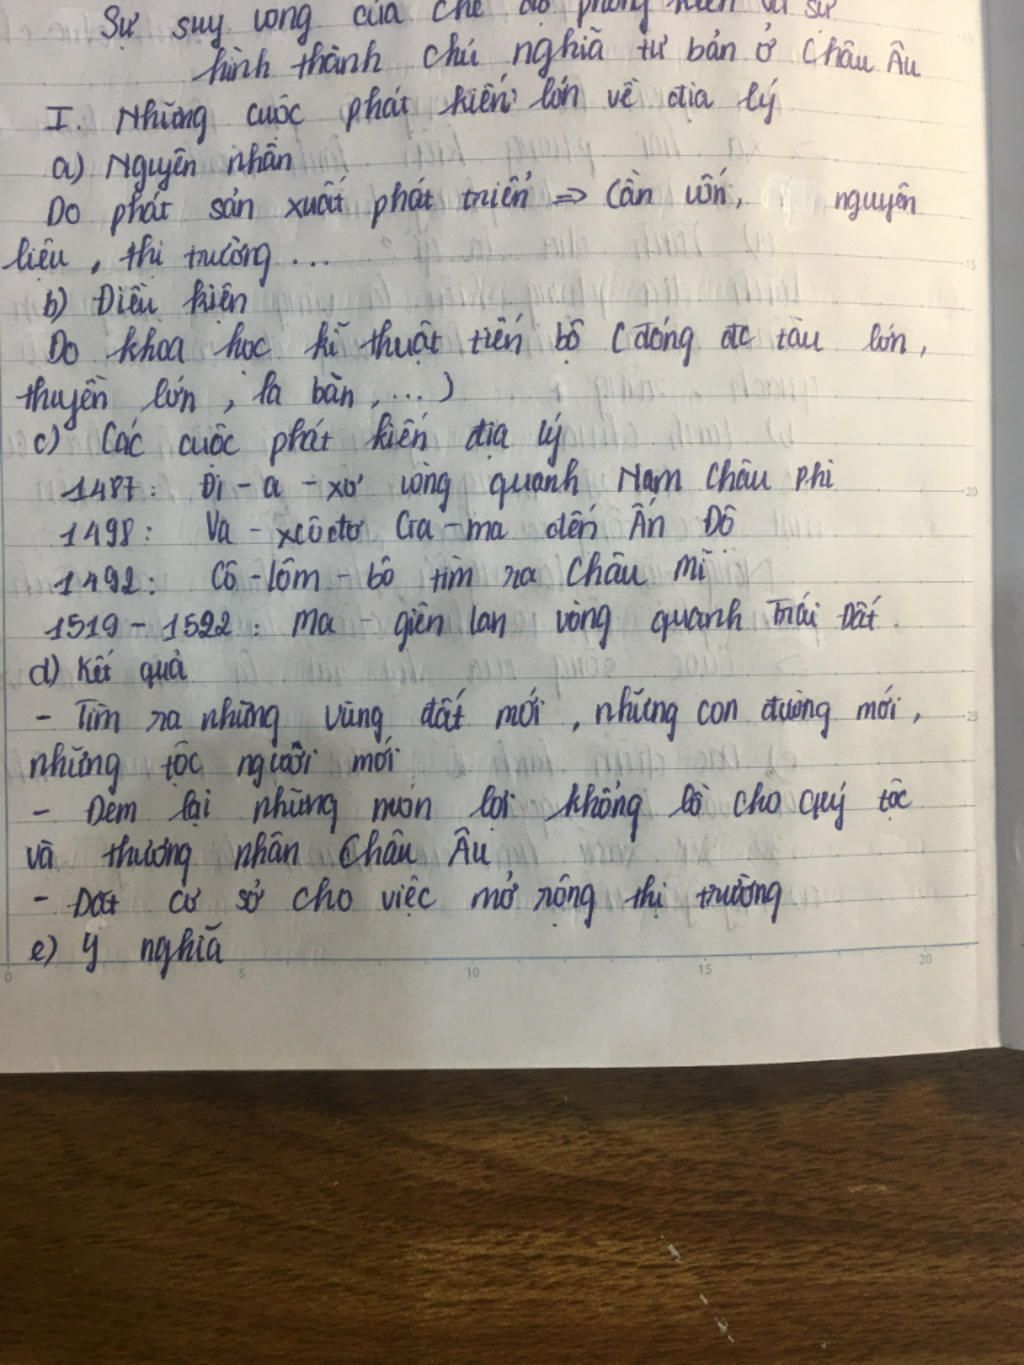 Sự suy vong của chế độ phong kiến và sự
hình thành chủ nghĩa tư bản ở Châu Âu
I. Những cuộc phát kiến lớn về địa lý
a) Nguyên nhân
Do phát sản xuất phát triển => Cần vốn, nguyên
liệu, thị trường ...
b) Điều kiện
Do khoa học kĩ thuật tiến bộ (đóng đc tàu lớn,
thuyền lớn, la bàn, ...)
c) Các cuộc phát kiến địa lý
1487: Đi-a-xơ vòng quanh Nam Châu Phi
1498: Va-xcôđơ Ga-ma đến Ấn Độ
1492: Cô-lôm-bô tìm ra Châu Mĩ
1519-1522: Ma-gien lan vòng quanh Trái Đất.
d) Kết quả
- Tìm ra những vùng đất mới, những con đường mới,
những tộc người mới
- Đem lại những món lợi khổng lồ cho quý tộc
và thương nhân Châu Âu
- Đặt cơ sở cho việc mở rộng thị trường
e) Ý nghĩa
0 5 10 15 20
15
20
25